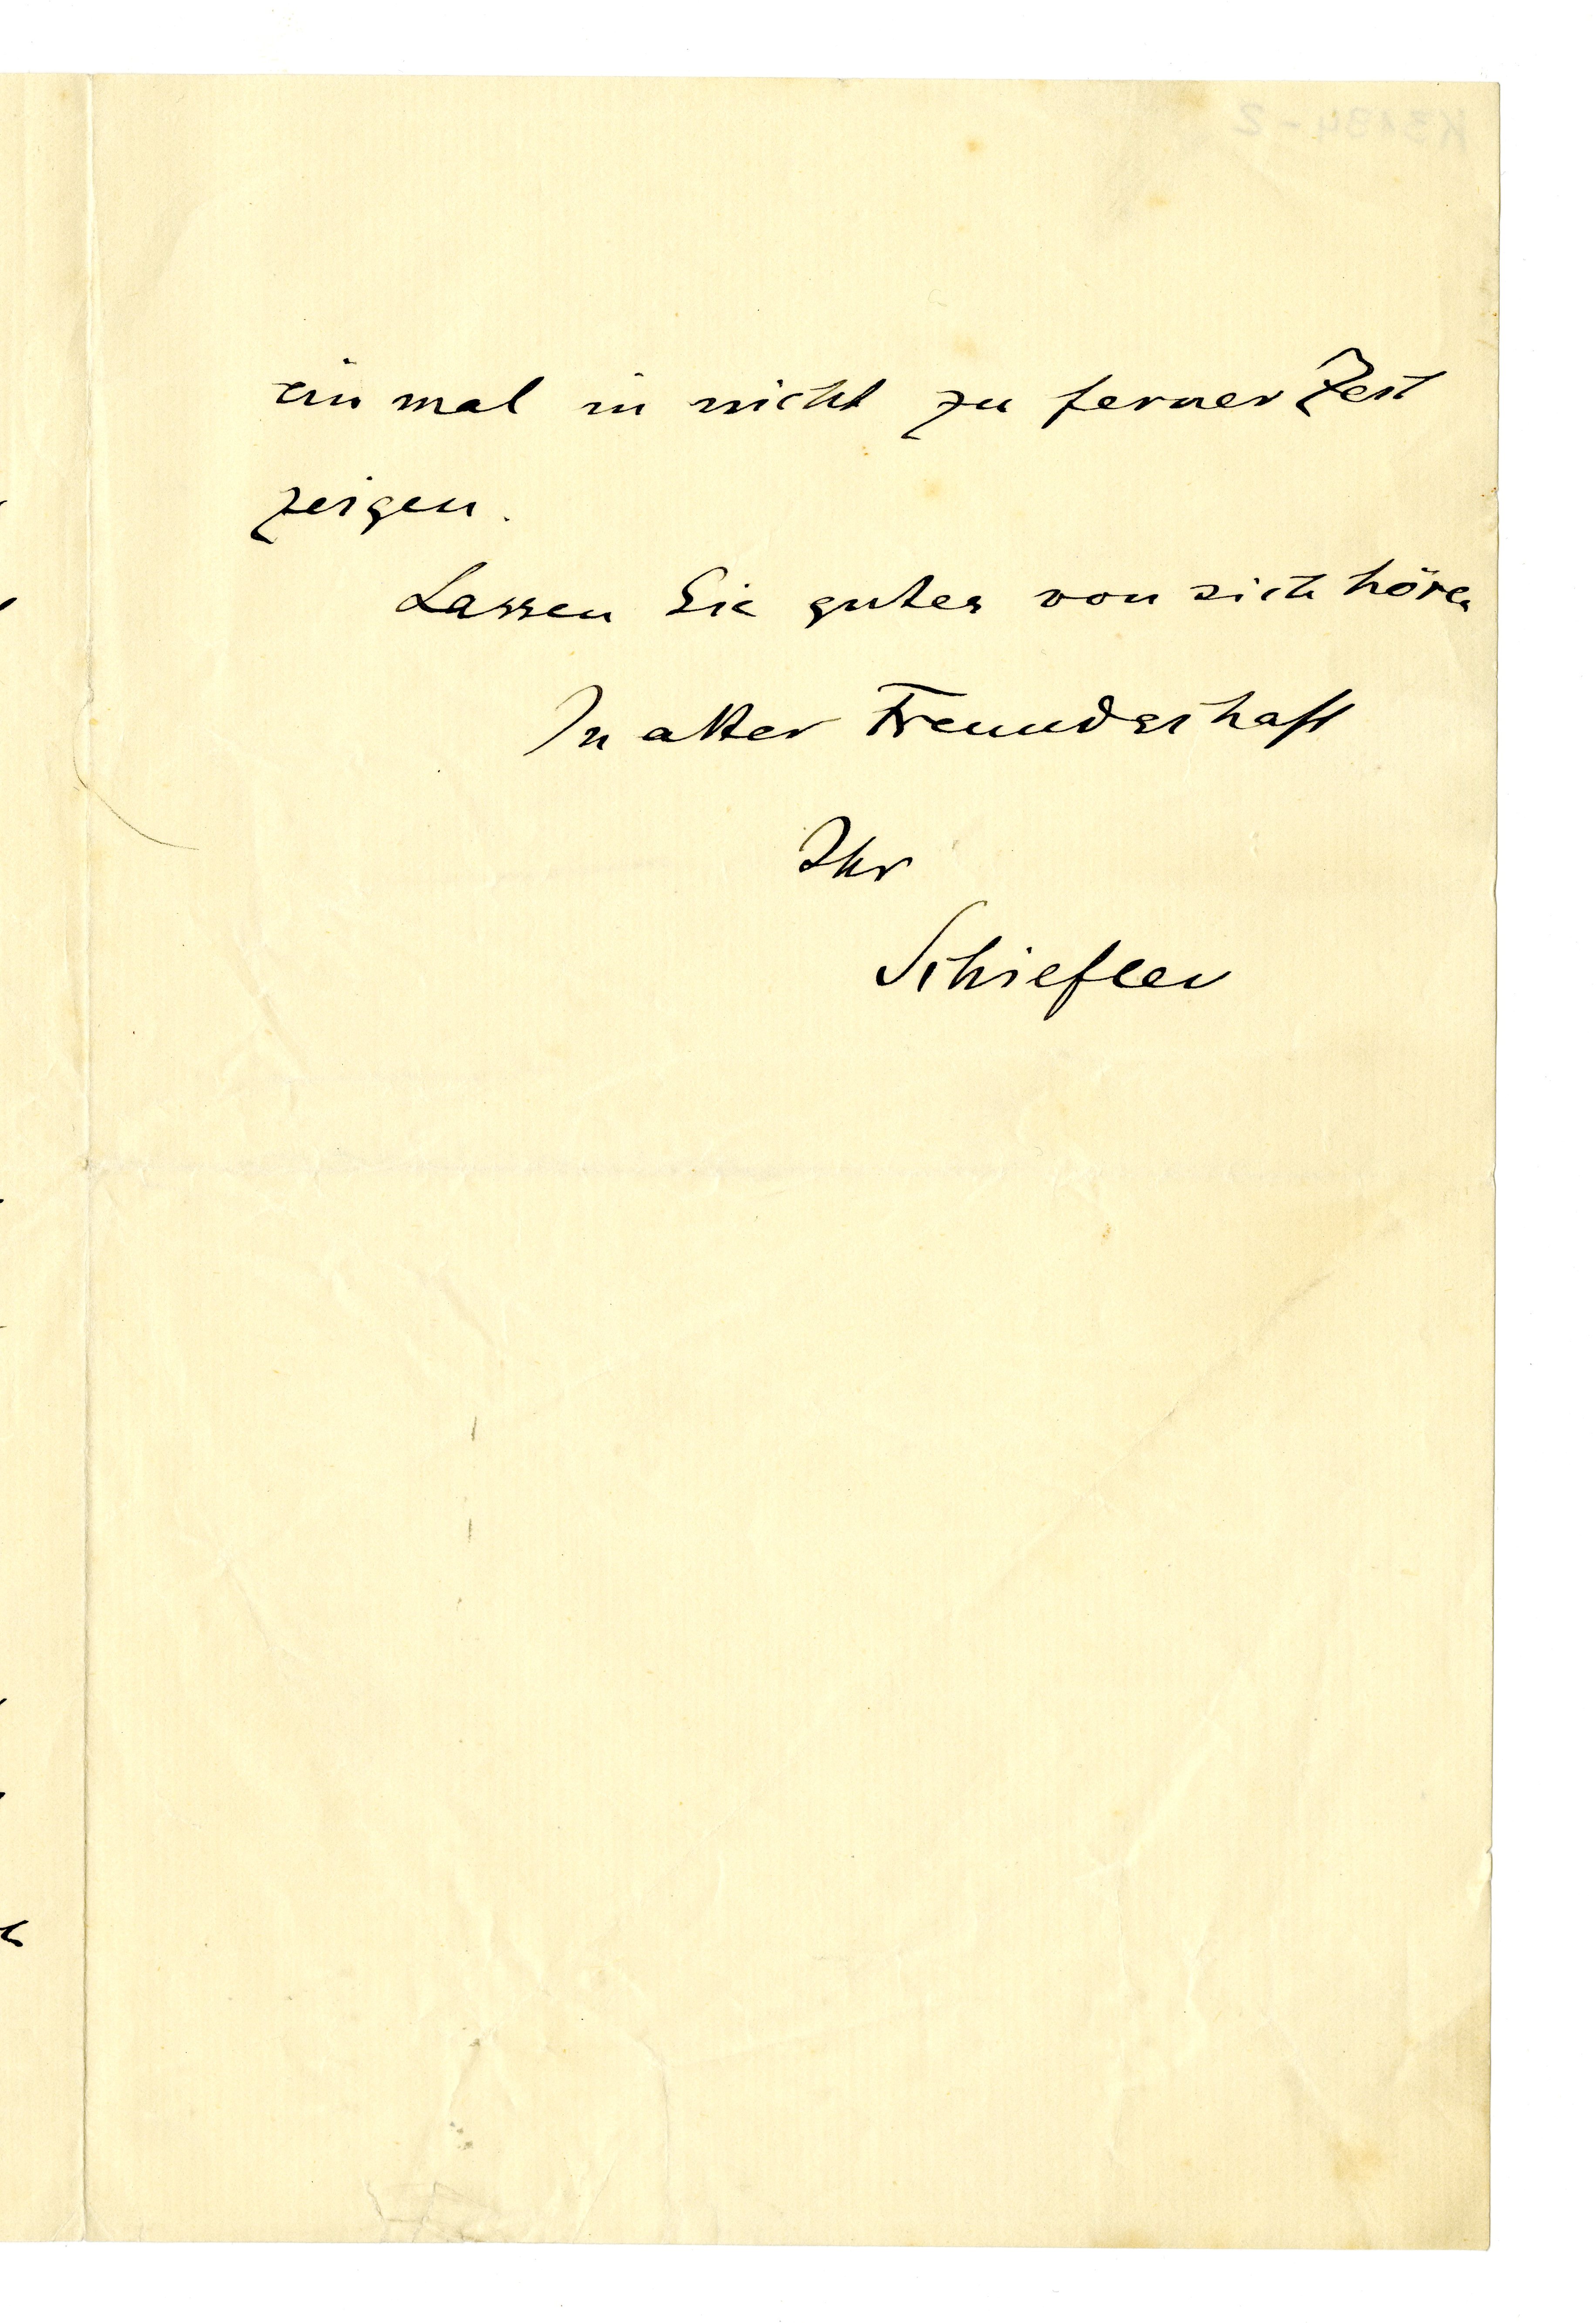 einmal in nicht zu ferner Zeit
zeigen.
Lassen Sie gutes von sich hören
In alter Freundschaft
Ihr
Schiefler